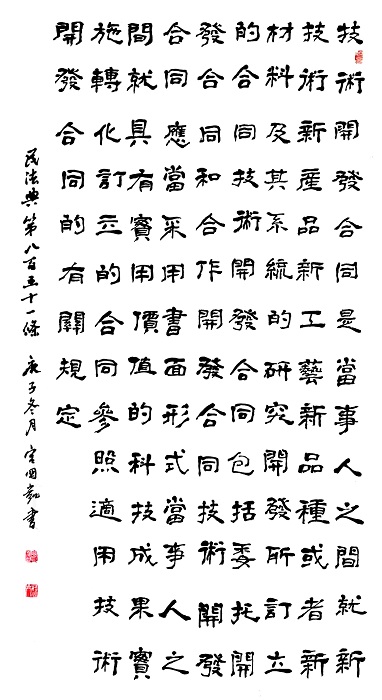 技術開發合同是當事人之間就新
技術新產品新工藝新品種或者新
材料及其系統的研究開發所訂立
的合同技術開發合同包括委托開
發合同和合作開發合同技術開發
合同應當采用書面形式當事人之
間就具有實用價值的科技成果實
施轉化訂立的合同參照適用技術
開發合同的有關規定
民法典第八百五十一條 庚子冬月 書